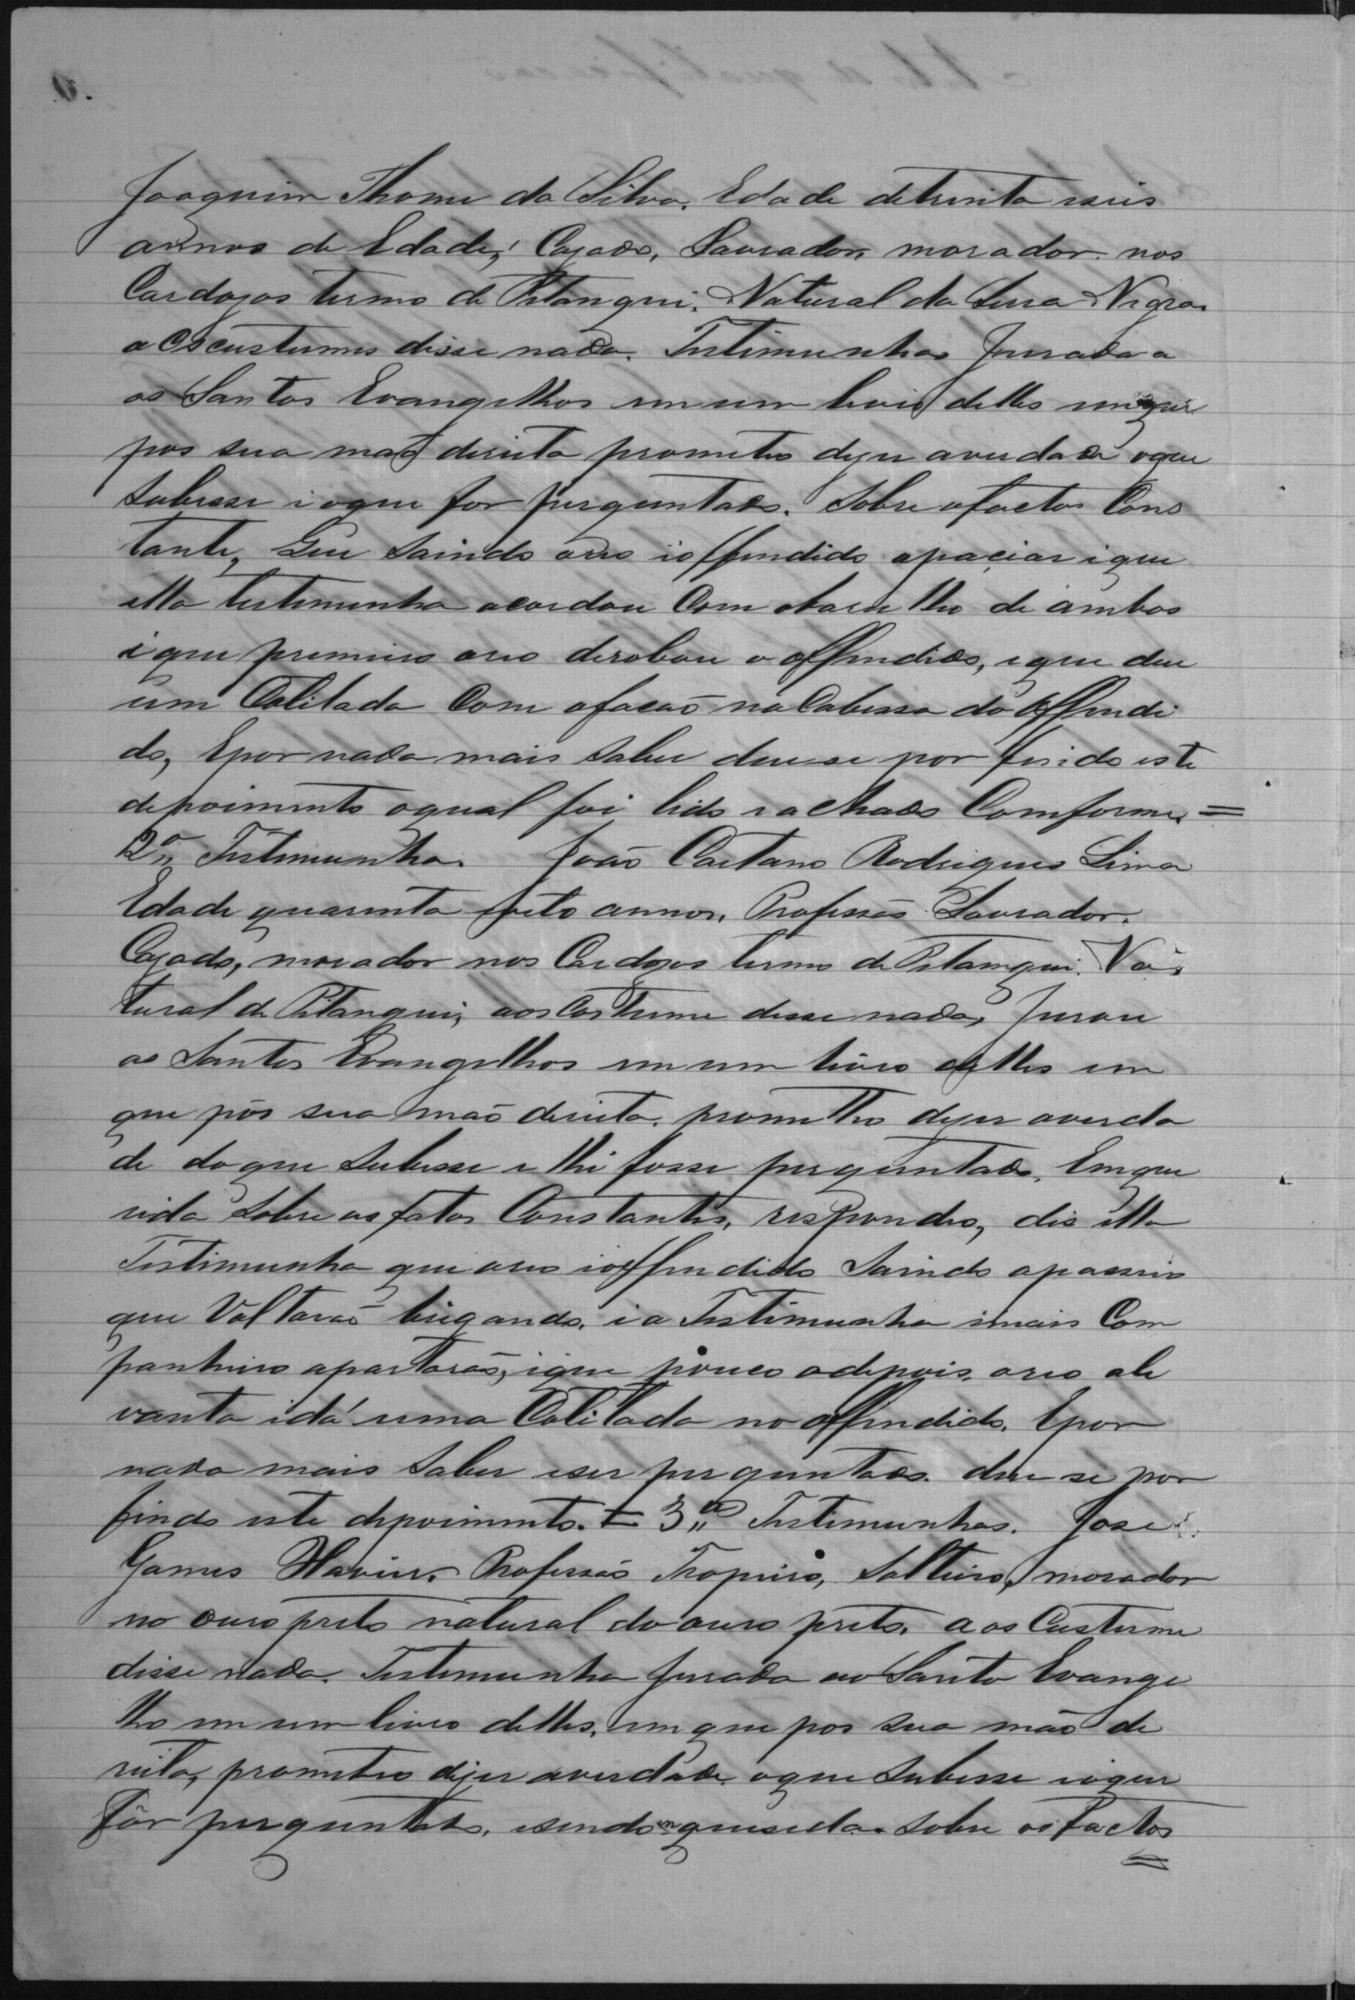 Joaquim Thome da Silva. Edade de trinta iseis
annos de Edade, Cazado, Lavrador, morador nos
Cardozos termo de Pitangui. Natural da Serra Negra.
a os custumes disse nada. Testimunha Jurada a
os Santos Evangelhos em um livro delles em que
pos sua maõ direita prometeo dizer averdade oque
Subesse i oque for perguntado. Sobre ofactos Cons
tante, Que Saindo oreo i offendido apaciar ique
ella testemunha acordou Com obarulho de ambos
i que premeiro oreo derobou o offendido, eque deu
um Cotilada Com afacaõ na Cabessa do offendi
do, Epor nada mais Saber deuse por findo este
depoimento oqual foi lido i achado Comforme. =
2ª Testimunha. João Caetano Rodrigues Lima
Edade quarenta ioito annos. Profissão Lavrador.
Cazado, morador nos Cardozos termo de Pitangui. Na
tural de Pitangui, aos Costume disse nada, Jurou
ao Santos Evangelhos em um livro delles em
que pôs sua maõ direita. prometteo dizer averda
de doque Subesse e lhi fosse perguntado. Emque
rida Sobre os fatos Constantes, respondeo, dis ella
Testimunha que oreo i offendido Saindo apasseio
que Voltaraõ brigando. i a Testimunha imais Com
panheiro apartaraõ, ique pouco adepois. oreo ale
vanta idá uma Cotilada no offendido. Epor
nada mais Saber eser perguntado. deu se por
findo este depoimento. = 3ª Testimunha. Jose
Gomes Xavier. Profissão Tropeiro, Solteiro, morador
no ouro preto natural do ouro preto. a os Custume
disse nada. Testemunha Jurada ao Santo Evange
lho em um livro delles, em que pos sua mão de
reita, prometeo dizer averdade oque Subesse ioque
fôr perguntado, esendo enquerida. Sobre os factos